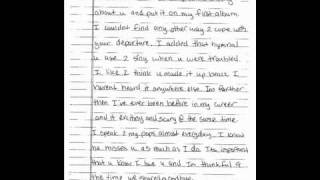 about u and put it on my first album.
I couldnt find any other way 2 cope with
your departure. I added that hymnal
u use 2 sing when u were troubled.
I like 2 think u made it up cause I
havent heard it anywhere else. Im farther
then I've ever been before in my career
and it exciting and scary @ the same time.
I speak 2 my pops almost everyday. I know
he misses u as much as I do. Its important
that u know I love u and. Im thankful 4
the time we shared